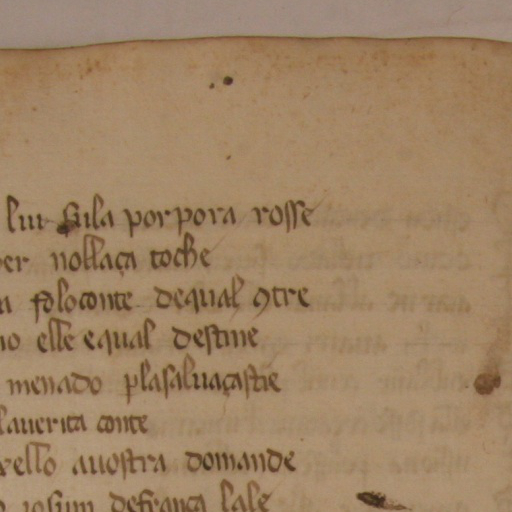 lui Sila porpora rosse
er nollaça toche
foloconte dequal ꝯtre
no elle equal destine
menado plasaluaçastie
lauerita conte
rello auostra domande
iosum defrança lale